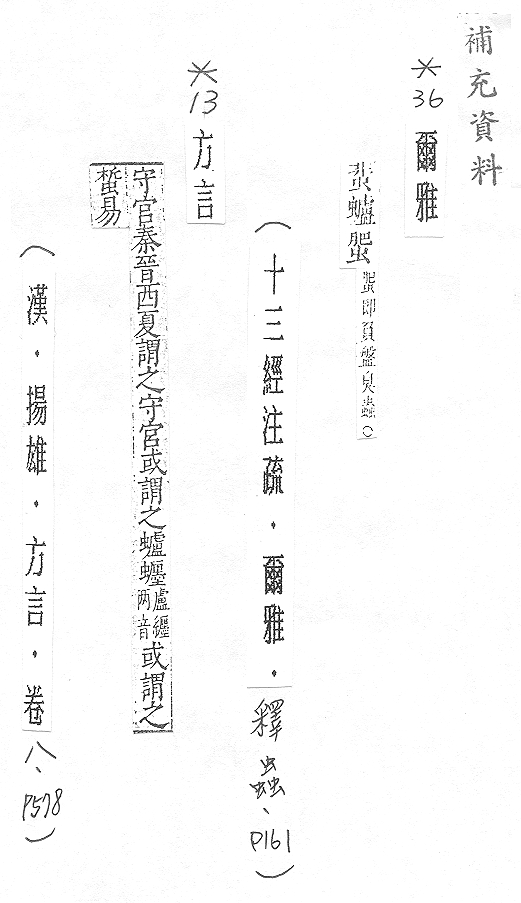 補充資料
＊36 爾雅
蜚蠦蜰 蜰即負盤臭蟲○
（十三經注疏．爾雅．釋蟲、P161）
＊13 方言
守宮秦晉西夏謂之守宮或謂之蠦䗺盧纏两音或謂之
蜤易
（漢．揚雄．方言．卷八、P578）